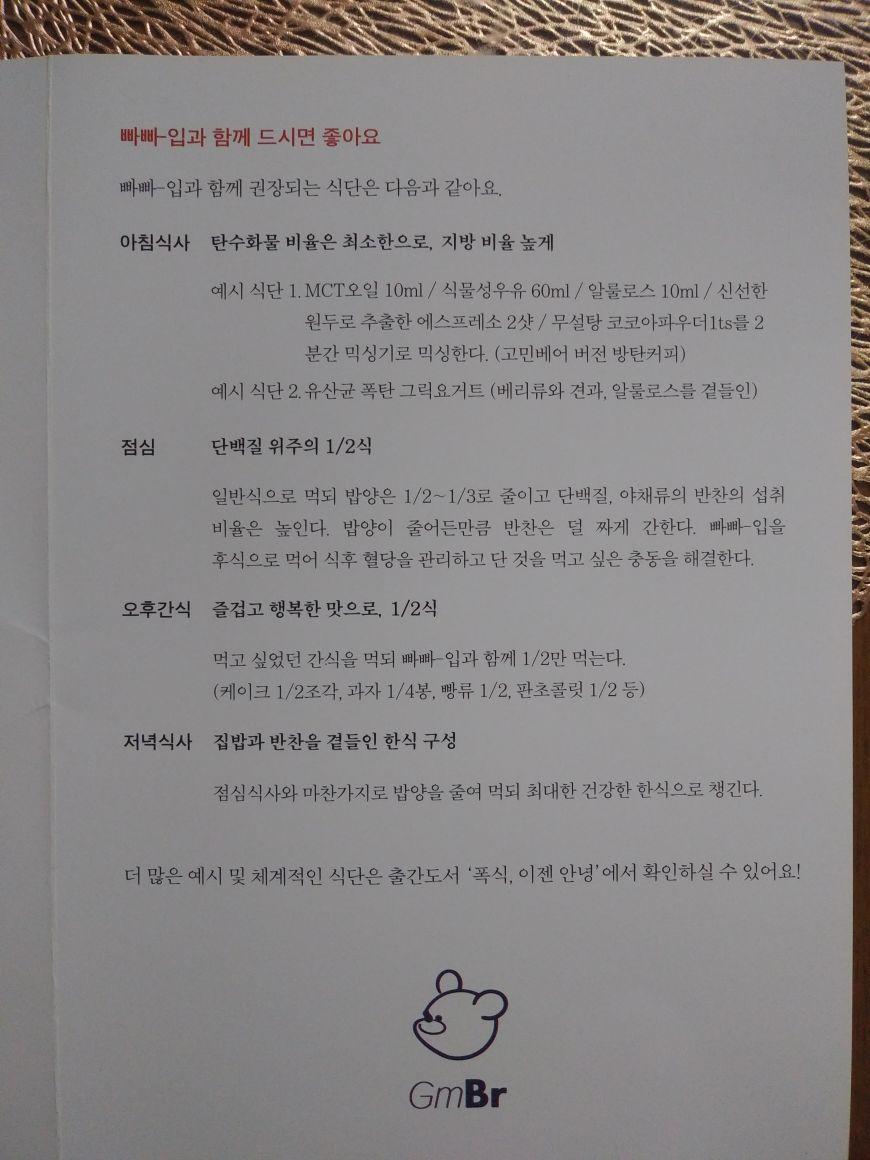 빠빠-입과 함께 드시면 좋아요
빠빠-입과 함께 권장되는 식단은 다음과 같아요.
아침식사 탄수화물 비율은 최소한으로, 지방 비율 높게
예시 식단 1. MCT오일 10ml / 식물성우유 60ml / 알룰로스 10ml / 신선한
원두로 추출한 에스프레소 2샷 / 무설탕 코코아파우더1ts를 2
분간 믹싱기로 믹싱한다. (고민베어 버전 방탄커피)
예시 식단 2. 유산균 폭탄 그릭요거트 (베리류와 견과, 알룰로스를 곁들인)
점심 단백질 위주의 1/2식
일반식으로 먹되 밥양은 1/2~1/3로 줄이고 단백질, 야채류의 반찬의 섭취
비율은 높인다. 밥양이 줄어든만큼 반찬은 덜 짜게 간한다. 빠빠-입을
후식으로 먹어 식후 혈당을 관리하고 단 것을 먹고 싶은 충동을 해결한다.
오후간식 즐겁고 행복한 맛으로, 1/2식
먹고 싶었던 간식을 먹되 빠빠-입과 함께 1/2만 먹는다.
(케이크 1/2조각, 과자 1/4봉, 빵류 1/2, 판초콜릿 1/2 등)
저녁식사 집밥과 반찬을 곁들인 한식 구성
점심식사와 마찬가지로 밥양을 줄여 먹되 최대한 건강한 한식으로 챙긴다.
더 많은 예시 및 체계적인 식단은 출간도서 ‘폭식, 이젠 안녕’에서 확인하실 수 있어요!
GmBr